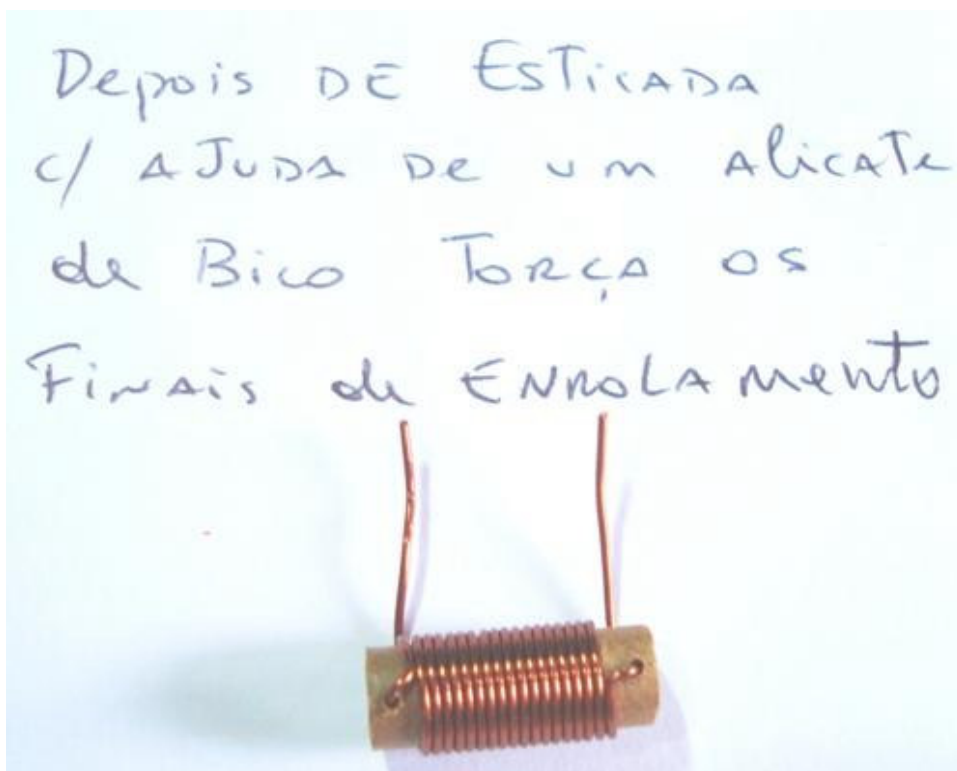 Depois DE ESTICADA
c/ AJUDA DE UM AlicATe
de Bico TORÇA OS
FiNAis de ENROLAMeNto